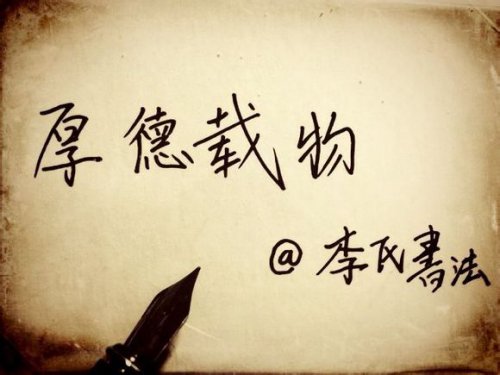 厚德载物
@李民書法